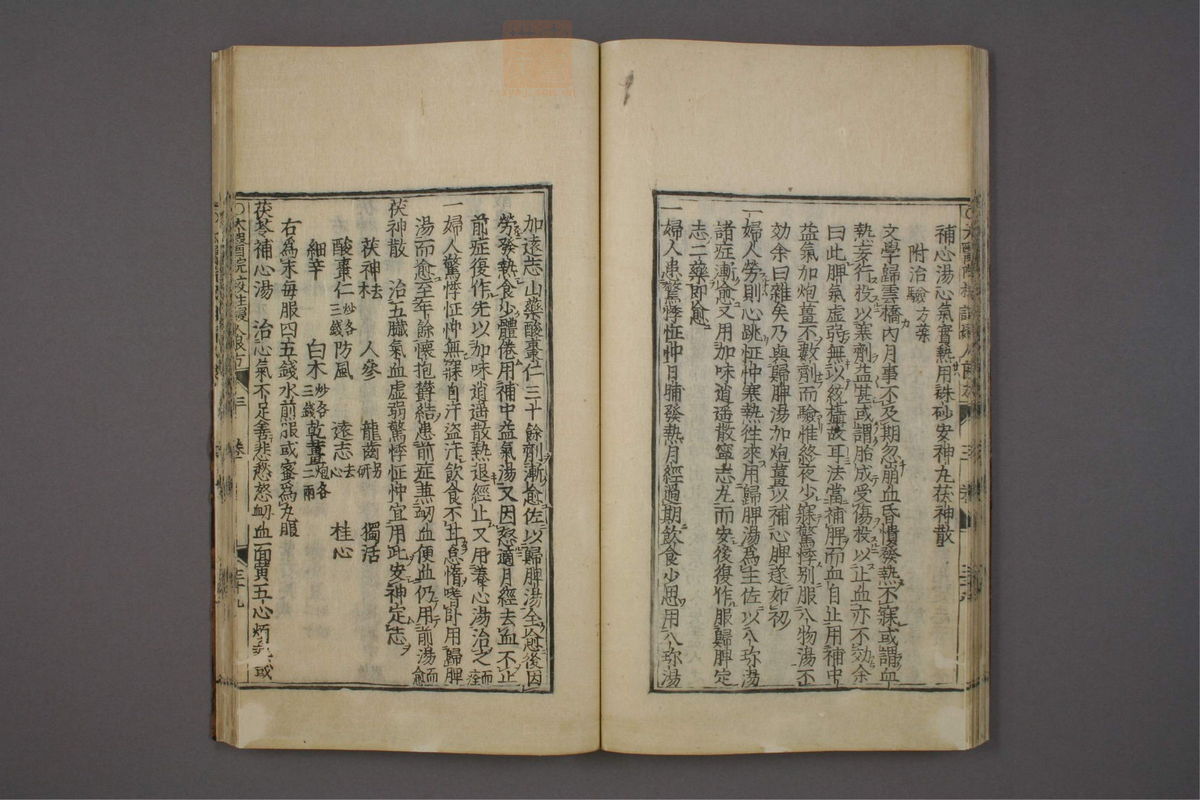 補心湯心氣實熱用硃砂安神丸茯神散
附治驗方藥
文學歸雲橋內月事不及期忽崩血昏憒發熱不寐或謂血
熱妄行投以寒劑益甚或謂胎成受傷投以止血亦不効余
曰此脾氣虛弱無以統攝故耳法當補脾而血自止用補中
益氣加炮薑不數劑而驗惟終夜少寐驚悸别服八物湯不
効余曰雜矣乃與歸脾湯加炮薑以補心脾遂如初
一婦人勞則心跳怔忡寒熱徃來用歸脾湯爲主佐以八珍湯
諸症漸愈又用加味逍遥散寧志丸而安後復作服歸脾定
志二藥即愈
一婦人患驚悸怔忡日晡發熱月經過期飲食少思用八珍湯
加遠志山藥酸棗仁三十餘劑漸愈佐以歸脾湯全愈後因
勞發熱食少體倦用補中益氣湯又因怒適月經去血不止
前症復作先以加味逍遥散熱退經止又用養心湯治之而痊
一婦人驚悸怔忡無寐自汗盜汗飲食不甘怠惰嗜卧用歸脾
湯而愈至年餘懷抱欝結患前症兼衂血便血仍用前湯而愈
茯神散 治五臟氣血虛弱驚悸怔忡宜用此安神定志
茯神木去 人參 龍齒另研 獨活
酸棗仁炒各三錢 防風 遠志去心 桂心
細辛 白朮炒各三錢 乾薑炮各二兩
右爲末每服四五錢水煎服或蜜爲丸服
茯苓補心湯 治心氣不足善悲愁怒衂血面黄五心煩熱或
三十九